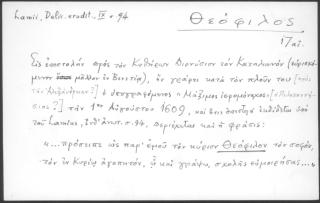 Lamii, Delic. erudit. IX σ. 94
Θεόφιλος
17 αἰ.
Εἰς ἐπιστολὴν πρὸς τὸν Κυθήρων Διονύσιον τὸν Κατηλιανόν (εὑρισκό-
μενον μᾶλλον ἐν Βενετίᾳ), ἣν γράφει κατὰ τὸν πλοῦν του [πρὸς
τὴν Ἀλεξάνδρειαν?] ὁ ὑπογραφόμενος « Μάξιμος ἱερομόναχος» [ὁ Πελοποννή-
σιος?] τὴν 1ην Αὐγούστου 1609, καὶ ἥτις ἐκδίδεται ὑπὸ
τοῦ Lamius, ἔνθ' ἀνωτ. σ. 94, περιέχεται καὶ ἡ φράσις:
«...πρόσειπε ὡς παρ' ἐμοῦ τὸν κύριον Θεόφιλον τὸν σοφόν,
τὸν ἐν Κυρίῳ ἀγαπητόν, ᾧ καὶ γράψω, σχολῆς εὐμοιρήσας...»